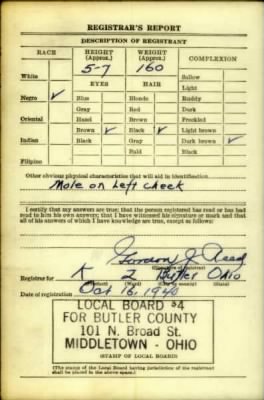 REGISTRAR'S REPORT
DESCRIPTION OF REGISTRANT
RACE HEIGHT (Approx.) WEIGHT (Approx.) COMPLEXION
5-7 160
White Sallow
EYES HAIR Light
Negro ✓ Blue Blonde Ruddy
Gray Red Dark
Oriental Hazel Brown Freckled
Brown ✓ Black ✓ Light brown
Indian Black Gray Dark brown ✓
Bald Black
Filipino
Other obvious physical characteristics that will aid in identification
Mole on Left cheek
I certify that my answers are true; that the person registered has read or has had
read to him his own answers; that I have witnessed his signature or mark and that
all of his answers of which I have knowledge are true, except as follows:
Gordon J.
Registrar for K 2 Butler Ohio
Date of registration Oct 16, 1940
LOCAL BOARD #4
FOR BUTLER COUNTY
101 N. Broad St.
MIDDLETOWN - OHIO
(STAMP OF LOCAL BOARD)
(The stamp of the Local Board having jurisdiction of the registrant
shall be placed in the above space.)